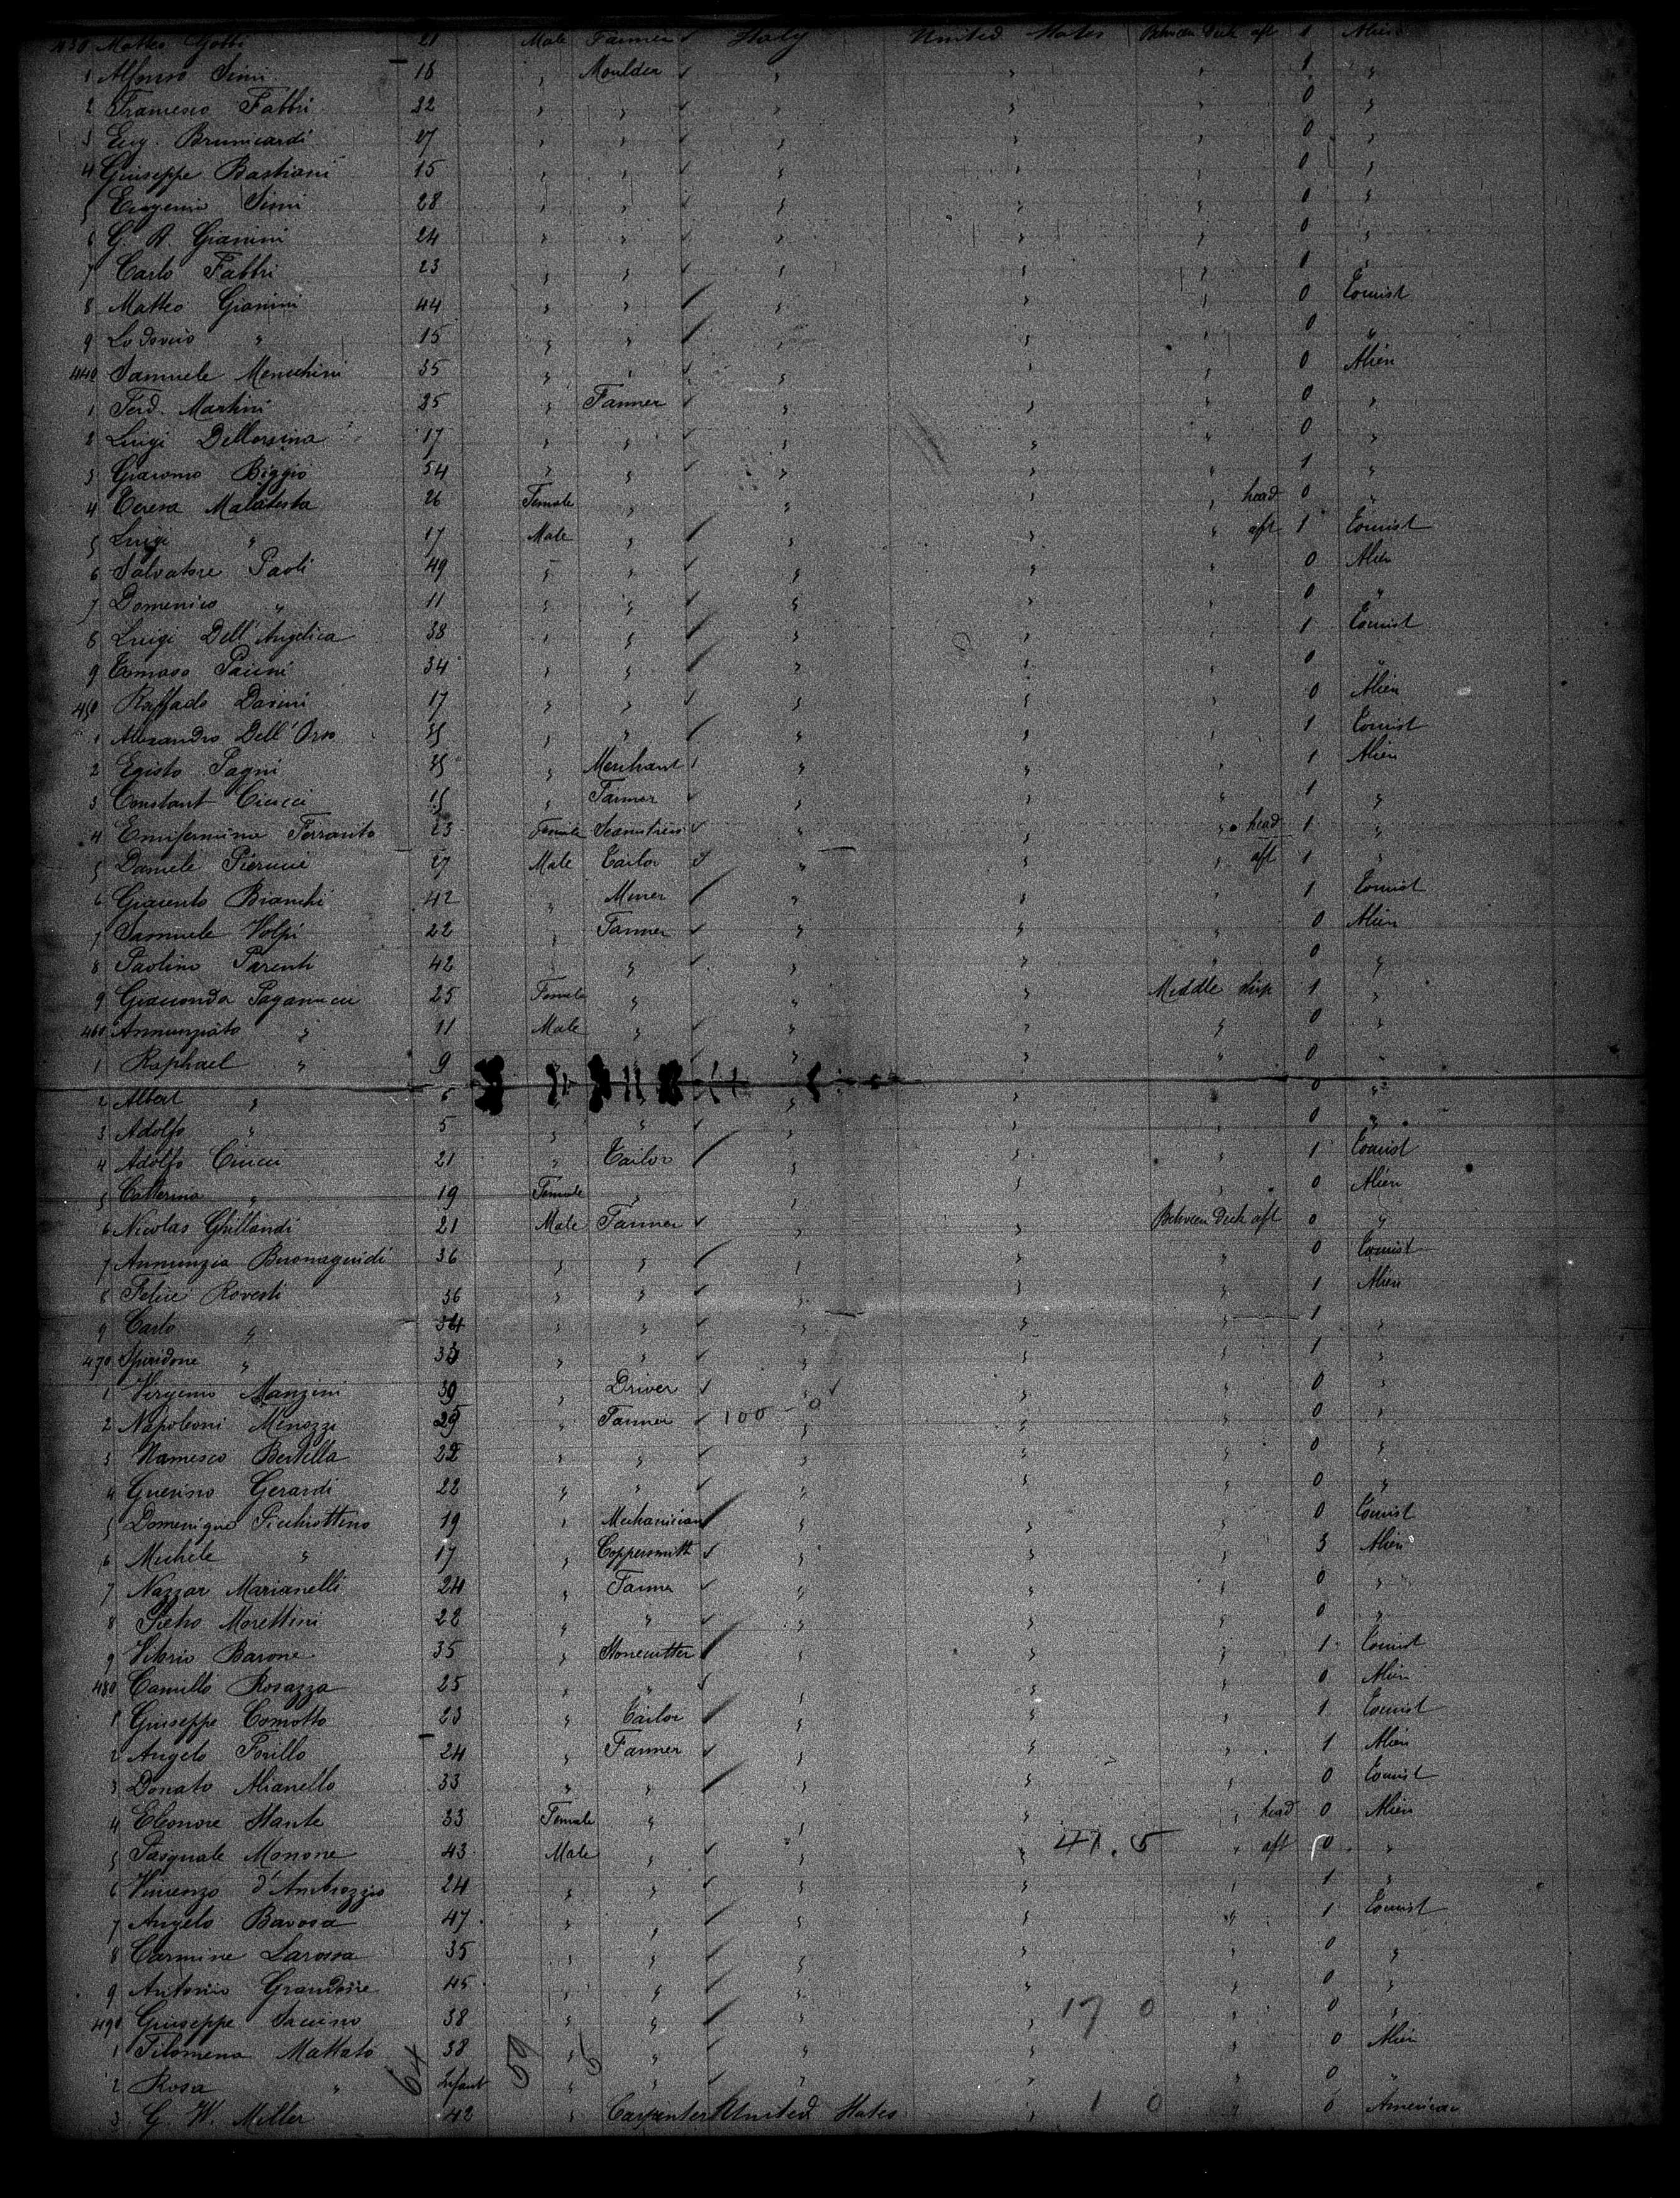 430 Matteo Gobbi 21 Male Farmer ✓ Italy United States Between Deck aft 1 Alien
1 Alfonso Simi 18 " Moulder ✓ " " " 1 "
2 Francesco Fabbri 32 " " ✓ " " " 0 "
3 Eug. Brunicardi 27 " " ✓ " " " 0 "
4 Giuseppe Bastiani 15 " " ✓ " " " 0 "
5 Eugenio Simi 28 " " ✓ " " " 0 "
6 G. A. Gianini 24 " " ✓ " " " 0 "
7 Carlo Fabbri 23 " " ✓ " " " 1 "
8 Matteo Gianini 44 " " / " " " 0 Tourist
9 Lodovico " 15 " " / " " " 0 "
440 Samuele Menchini 35 " " ✓ " " " 0 Alien
1 Ferd. Martini 25 " Farmer ✓ " " " 0 "
2 Luigi Dellorsina 17 " " ✓ " " " 0 "
3 Giacomo Biggio 54 " " ✓ " " " 1 "
4 Teresa Malatesta 26 Female " " " " head 0 "
5 Luigi " 17 Male " / " " " aft 1 Tourist
6 Salvatore Paoli 49 " " ✓ " " " 0 Alien
7 Domenico " 11 " " ✓ " " " 0 "
8 Luigi Dell'Angelica 38 " " / " " " 1 Tourist
9 Tomaso Pacini 34 " " / " " " 0 "
450 Raffaelo Dasini 17 " " ✓ " " " 0 Alien
1 Alesandro Dell'Orso 35 " " / " " " 1 Tourist
2 Egisto Pagni 35 " Merchant " " " 1 Alien
3 Constant Ciucci 15 " Farmer ✓ " " " 1 "
4 Ferranito 23 Female Seamstress ✓ " " " head 1 "
5 Daniele Pierucci 27 Male Tailor ✓ " " " aft 1 "
6 Giacento Bianchi 42 " Miner / " " " 1 Tourist
7 Samuele Volpi 22 " Farmer ✓ " " " 0 Alien
8 Paolino Parenti 42 " " ✓ " " " 0 "
9 Gioconda Paganucci 25 Female " " " Middle ship 1 "
460 Annunziato " 11 Male " ✓ " " " 0 "
1 Raphael " 9 ✓ " " " 0 "
2 Albert " 6 " " " 0 "
3 Adolfo " 5 " " ✓ " " " 0 "
4 Adolfo Ciucci 21 " Tailor / " " " 1 Tourist
5 Catterina " 19 Female " " " " 0 Alien
6 Nicolas Ghillandi 21 Male Farmer ✓ " " Between Deck aft 0 "
7 Annunzia Buonaguidi 36 " " / " " " 0 Tourist
8 Felice Rovesti 36 " " ✓ " " " 1 Alien
9 Carlo " 34 " " ✓ " " " 1 "
470 Spiridone " 33 " " ✓ " " " 1 "
1 Virginio Manzini 39 " Driver ✓ " " " 0 "
2 Napoleoni Menozzi 29 " Farmer ✓ 100 - 0 " " " 0 "
3 Bertella 22 " " ✓ " " " 0 "
4 Guerino Gerardi 22 " " ✓ " " " 0 "
5 Domenique Picchiottino 19 " Mechanician / " " " 0 Tourist
6 Michele " 17 " Coppersmith ✓ " " " 3 Alien
7 Nazzar Marianelli 24 " Farmer ✓ " " " 0 "
8 Pietro Morettini 28 " " ✓ " " " 0 "
9 Vitorio Barone 35 " Stonecutter / " " " 1 Tourist
480 Camillo Rosazza 25 " " ✓ " " " 0 Alien
1 Giuseppe Comotto 23 " Tailor / " " " 1 Tourist
2 Angelo Forillo 24 " Farmer ✓ " " " 1 Alien
3 Donato Alianello 33 " " / " " " 0 Tourist
4 Eleonore Stante 33 Female " " " " head 0 Alien
5 Pasquale Monone 43 Male " ✓ " " 41.5 " aft 0 "
6 Vincenzo d'Ambrozzio 24 " " ✓ " " " 1 "
7 Angelo Bavosa 47 " " / " " " 1 Tourist
8 Carmine Larossa 35 " " / " " " 0 "
9 Antonio Grandoire 45 " " / " " " 0 "
490 Giuseppe 38 " " / " " 17 0 " 0 "
1 Filomena Mattato 38 " " ✓ " " " 0 Alien
2 Rosa " Infant " " ✓ " " " 0 "
64 59 5
3 G. W. Miller 42 " Carpenter United States " 1 0 " 0 American